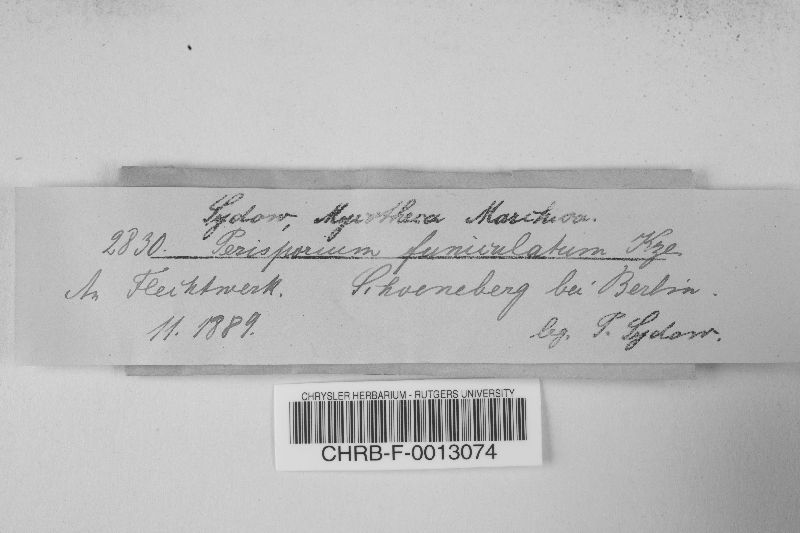 Sydow, Mycotheca Marchica.
2830. Perisporium funiculatum Kze
An Flechtwerk. Schoeneberg bei Berlin.
11. 1889. leg. P. Sydow.
CHRYSLER HERBARIUM - RUTGERS UNIVERSITY
CHRB-F-0013074